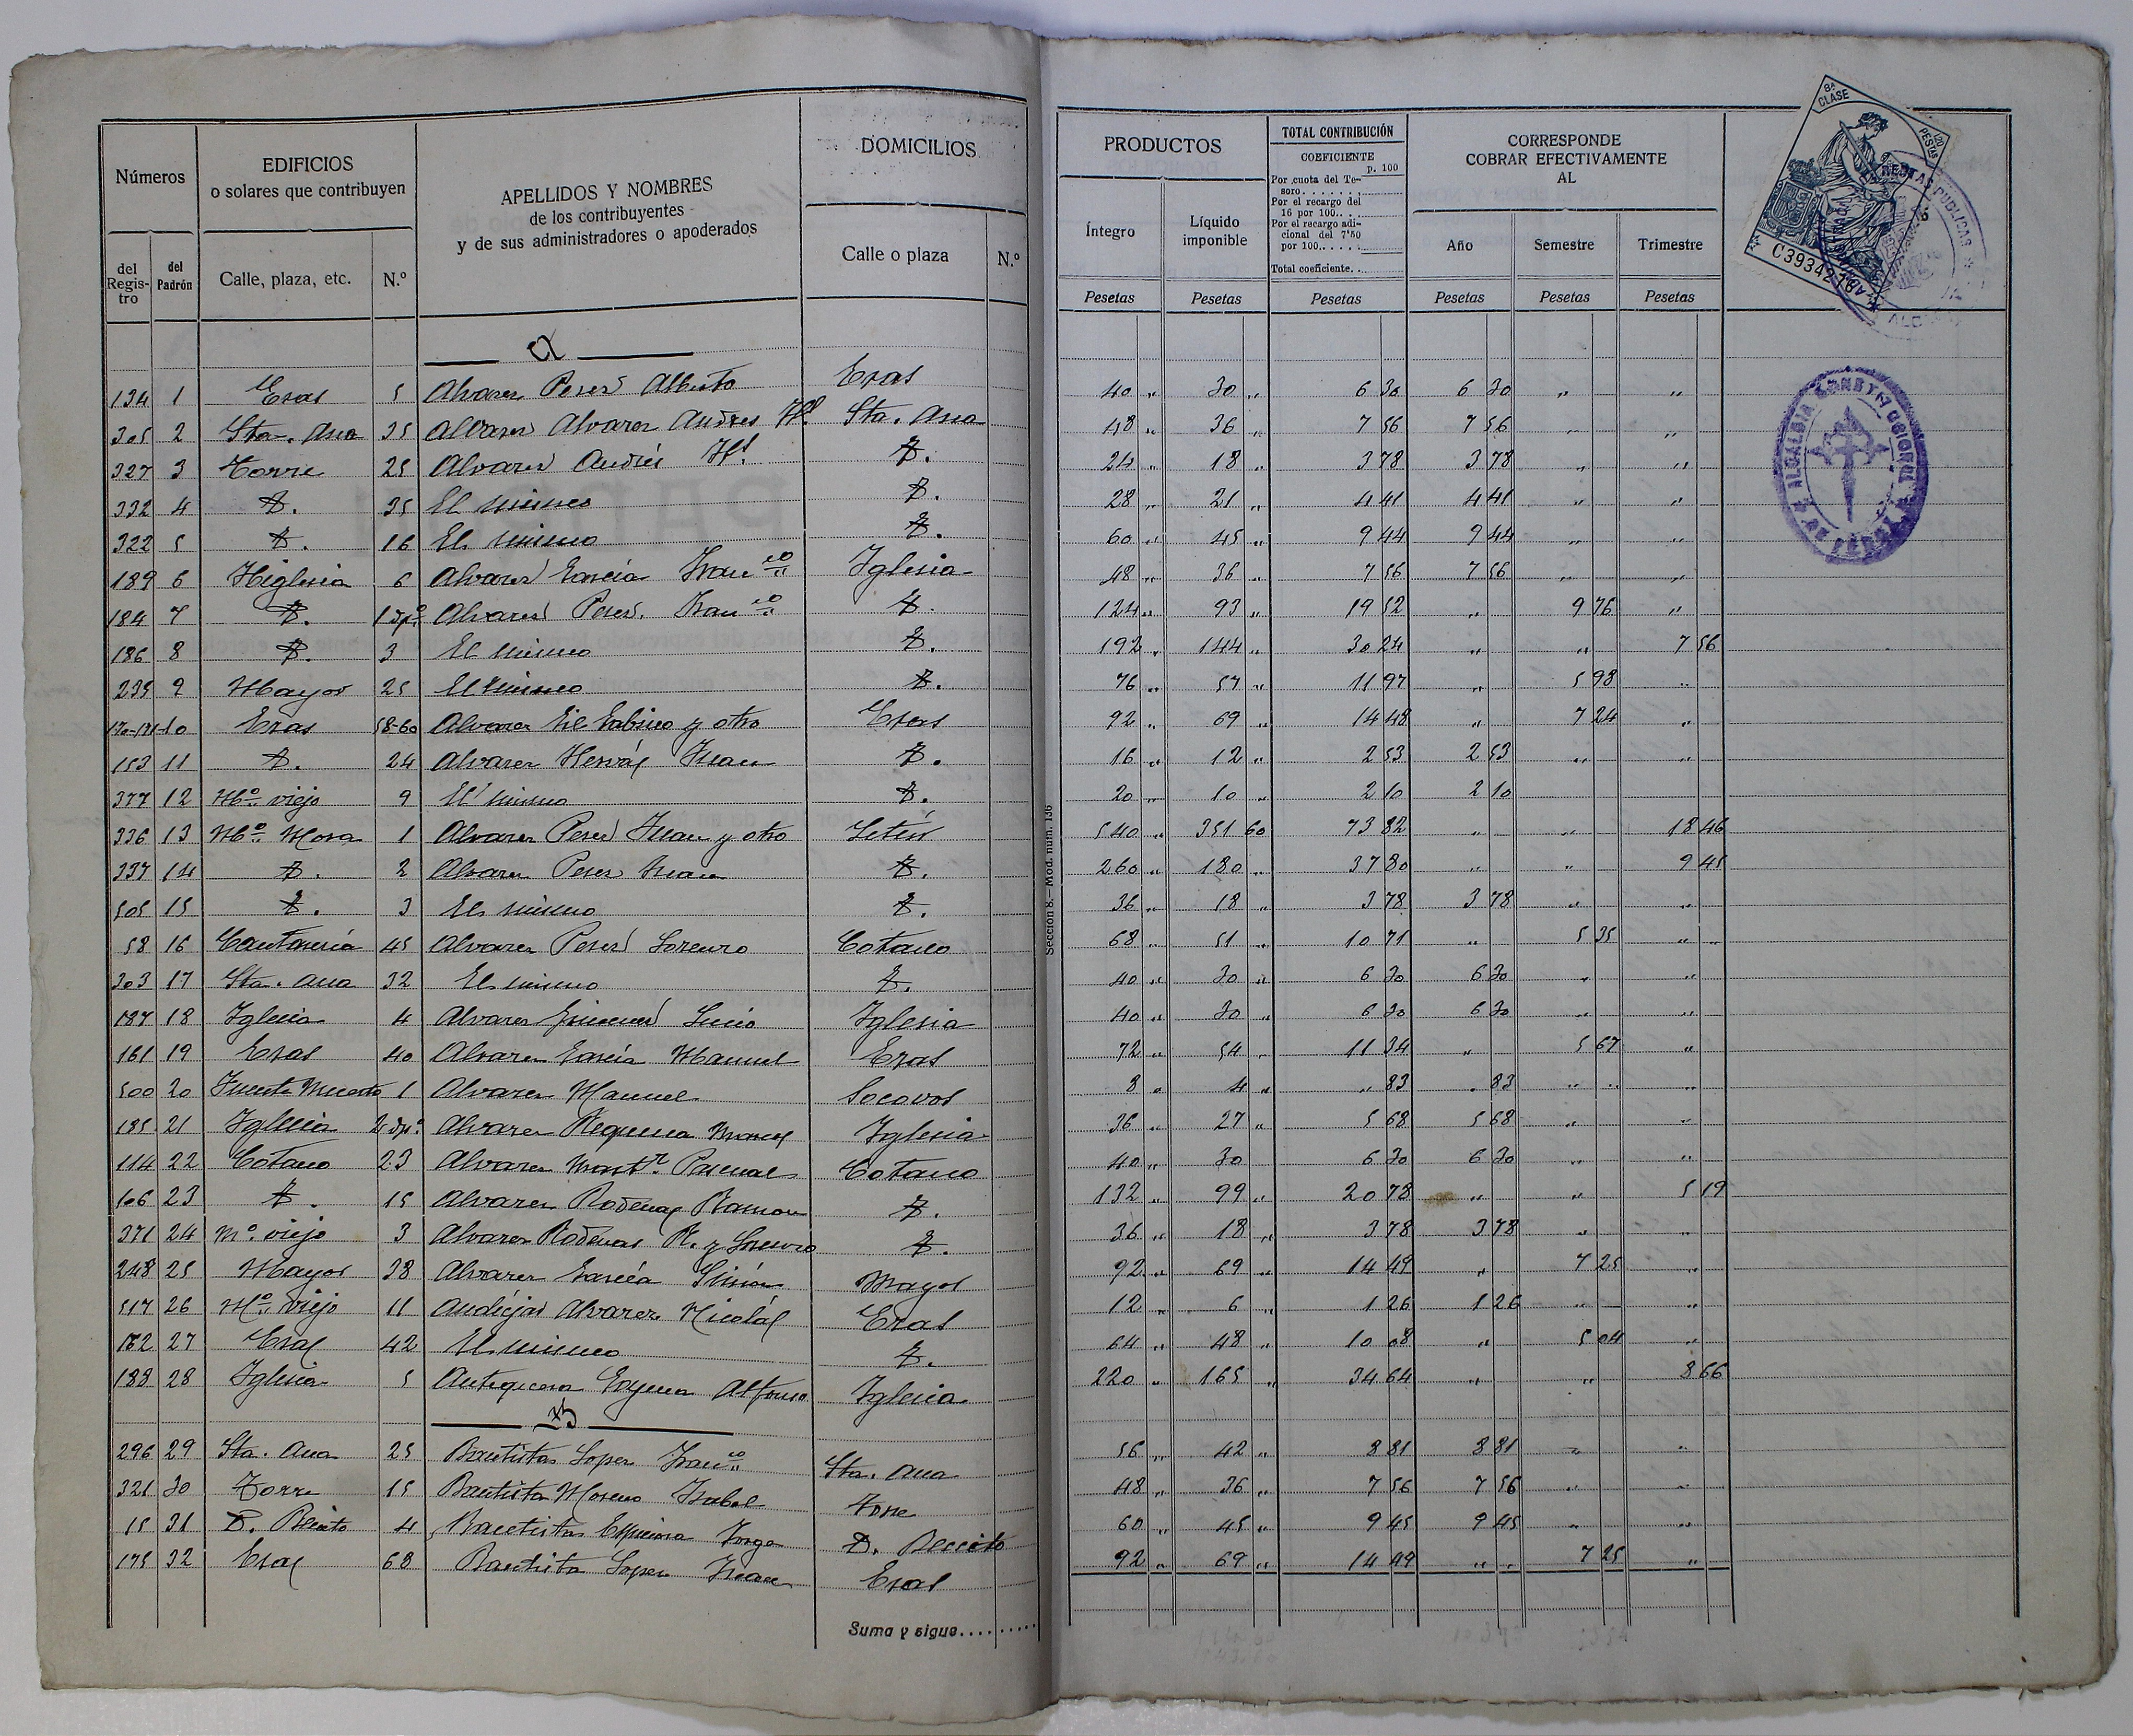 Números
EDIFICIOS
o solares que contribuyen
APELLIDOS Y NOMBRES
de los contribuyentes
y de sus administradores o apoderados
DOMICILIOS
PRODUCTOS
TOTAL CONTRIBUCIÓN
COEFICIENTE
p. 100
Por cuota del Te-
soro.......
Por el recargo del
16 por 100...
Por el recargo adi-
cional del 7'50
por 100......
Total coeficiente..
CORRESPONDE
COBRAR EFECTIVAMENTE
AL
del Regis-tro
del Padrón
Calle, plaza, etc.
N.º
Calle o plaza
N.º
Íntegro
Líquido imponible
Año
Semestre
Trimestre
Pesetas Pesetas Pesetas Pesetas Pesetas Pesetas
8ª CLASE
1'20 PESETAS
C3934218
RENTAS PUBLICAS
ALCALDIA CONSTITUCIONAL
Sección 8.— Mod. núm. 136
a
134 1 Eras 5 Alvarez Perez Alberto Eras 40 " 30 " 6 30 6 30 " "
305 2 Sta. Ana 35 Alvarez Alvarez Andres Hº Sta. Ana 48 " 36 " 7 56 7 56 " "
327 3 Torre 25 Alvarez Andrés Hº Y. 24 " 18 " 3 78 3 78 " "
332 4 Y. 35 El mismo Y. 28 " 21 " 4 41 4 41 " "
322 5 Y. 16 El mismo Y. 60 " 45 " 9 44 9 44 " "
189 6 Higlesia 6 Alvarez García Franco Iglesia 48 " 36 " 7 56 7 56 " "
184 7 Y. 1 dpº Alvarez Perez Franco Y. 124 " 93 " 19 52 " 9 76 "
186 8 Y. 3 El mismo Y. 192 " 144 " 30 24 " " 7 56
235 9 Mayor 25 El mismo Y. 76 " 57 " 11 97 " 5 98 "
170-171 10 Eras 58-60 Alvarez Gil Gabino y otro Eras 92 " 69 " 14 48 " 7 24 "
153 11 Y. 24 Alvarez Hervás Juan Y. 16 " 12 " 2 53 2 53 " "
377 12 Mº viejo 9 El mismo Y. 20 " 10 " 2 10 2 10
336 13 Mº Mora 1 Alvarez Perez Juan y otro Letur 540 " 351 60 73 82 " " 18 46
337 14 Y. 2 Alvarez Perez Juan Y. 260 " 180 " 37 80 " " 9 45
505 15 Y. 3 El mismo Y. 36 " 18 " 3 78 3 78 " "
58 16 Cantarería 45 Alvarez Perez Lorenzo Cotano 68 " 51 " 10 71 " 5 35 " "
303 17 Sta. Ana 32 El mismo Y. 40 " 30 " 6 30 6 30 " "
187 18 Iglesia 4 Alvarez Gimenez Lucio Iglesia 40 " 30 " 6 30 6 30 " "
161 19 Eras 40 Alvarez García Manuel Eras 72 " 54 " 11 34 " 5 67 "
500 20 Fuente Muerto 1 Alvarez Manuel Socovos 8 " 4 " " 83 " 83 " "
185 21 Iglesia 2 dpº Alvarez Requena Marcos Iglesia 36 " 27 " 5 68 5 68 " "
114 22 Cotano 23 Alvarez Martz Pascual Cotano 40 " 30 6 30 6 30 " "
106 23 Y. 15 Alvarez Rodenas Ramon Y. 132 " 99 " 20 78 " " 5 19
371 24 Mº viejo 3 Alvarez Rodenas R. y Lorenzo Y. 36 " 18 " 3 78 3 78 " "
248 25 Mayor 38 Alvarez García Simón Mayor 92 " 69 " 14 49 " 7 25 "
517 26 Mº viejo 11 Andújar Alvarez Nicolás Eras 12 " 6 " 1 26 1 26 " "
162 27 Eras 42 El mismo Y. 64 " 48 " 10 08 " 5 04 "
188 28 Iglesia 5 Antequera Alfonso Iglesia 220 " 165 " 34 64 " " 8 66
B
296 29 Sta. Ana 25 Bautista Lopez Franco Sta. Ana 56 " 42 " 8 81 8 81 " "
321 30 Torre 15 Bautista Moreno Isabel Torre 48 " 36 " 7 56 7 56 " "
15 31 Benito 4 Bautista Espinosa Jorge 60 " 45 " 9 45 9 45 " "
175 32 Eras 68 Bautista Lopez Juan Eras 92 " 69 " 14 49 " " 7 25 "
Suma y sigue........